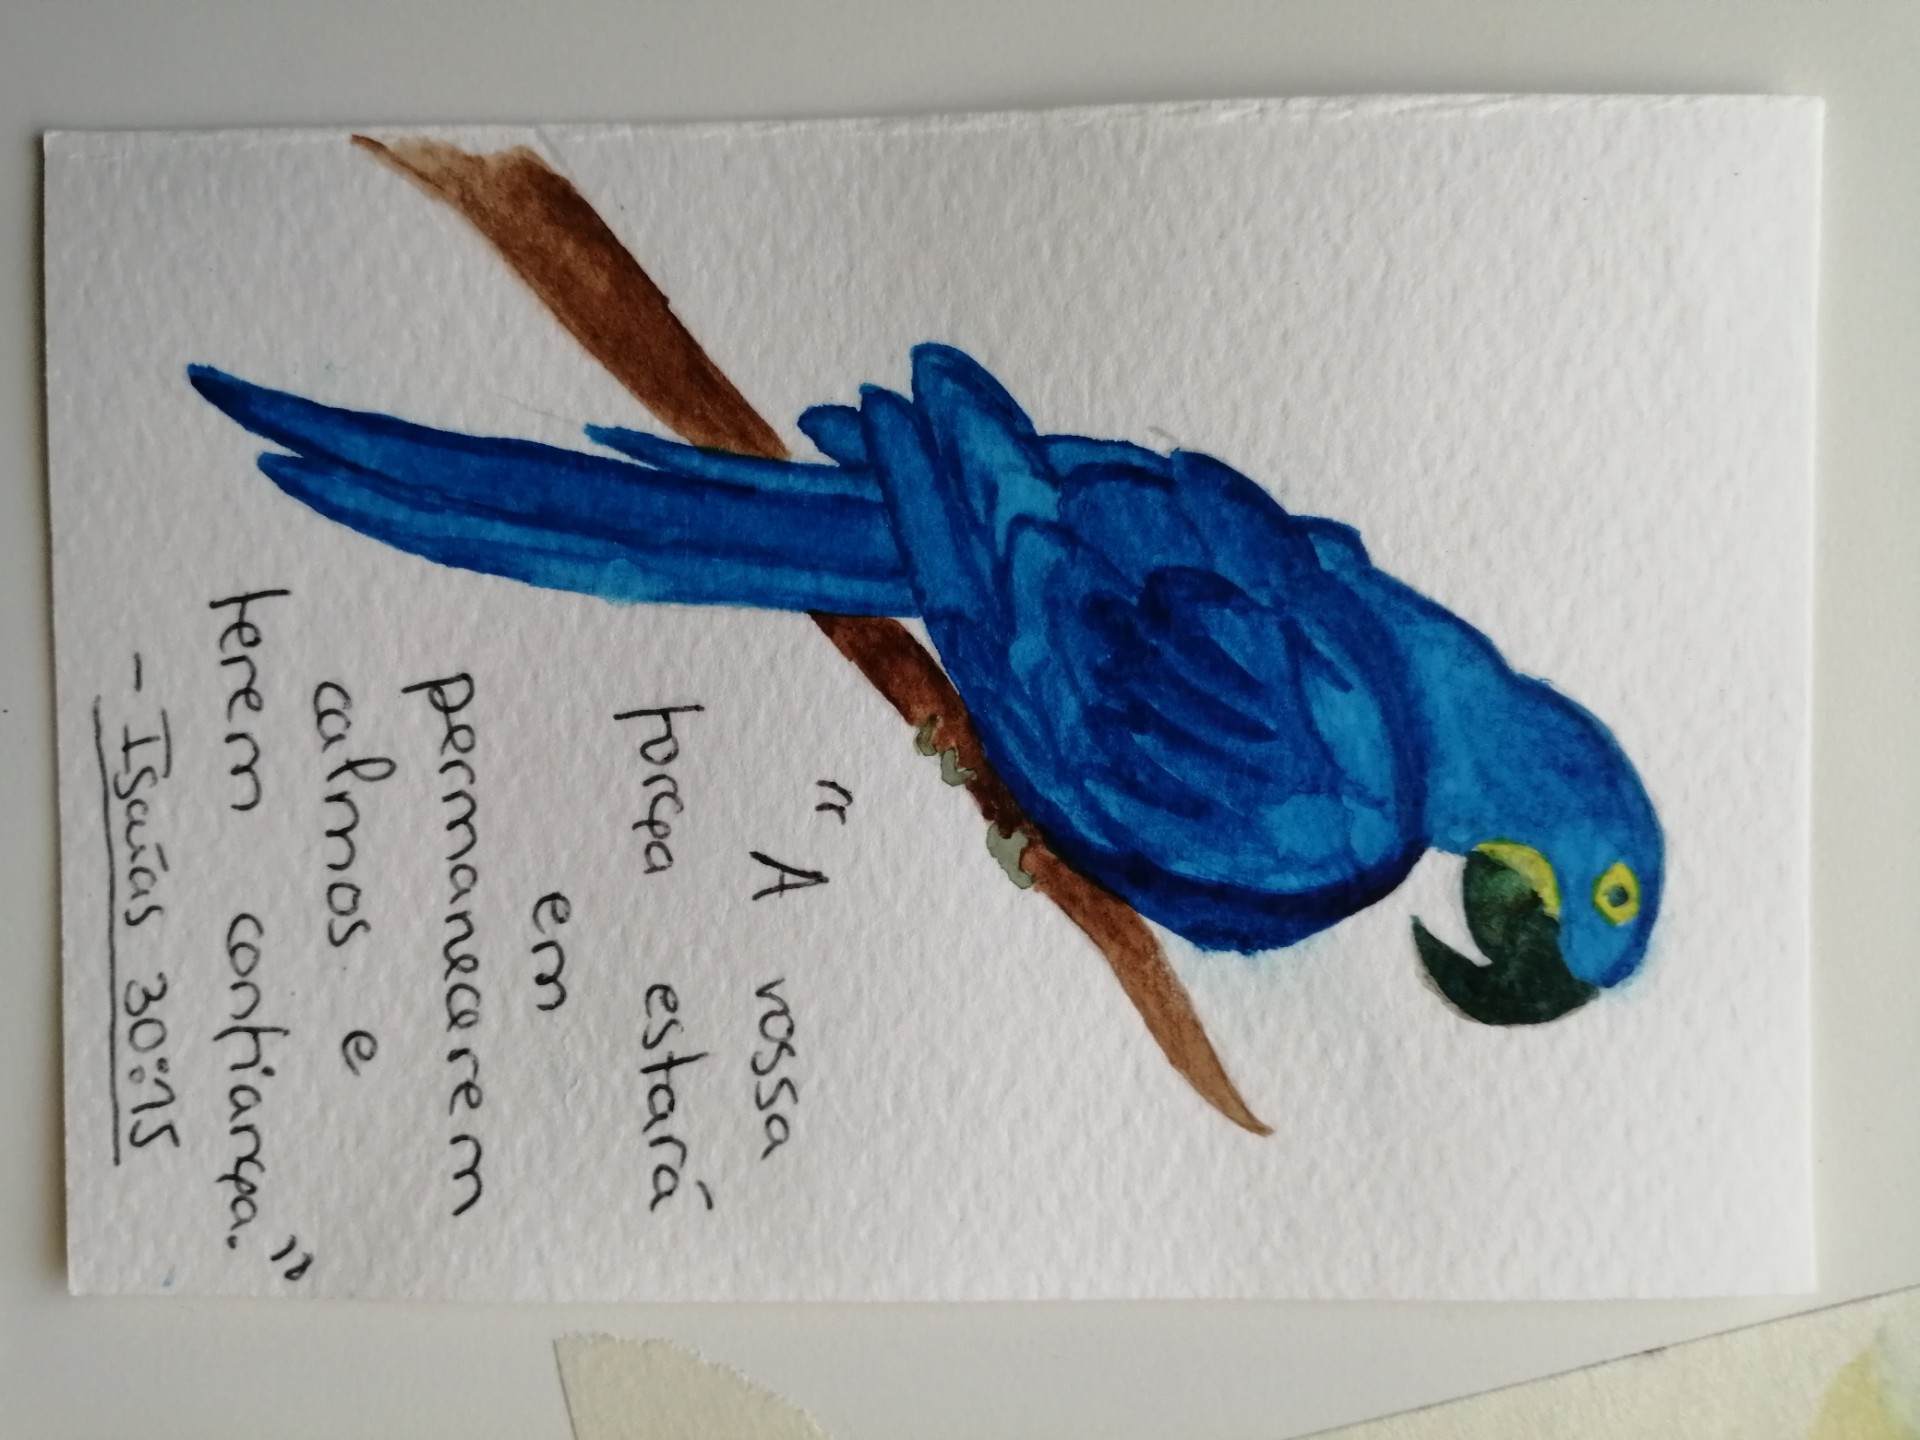 "A vossa
força estará
em
permanecerem
calmos e
terem confiança."
- Isaías 30:15